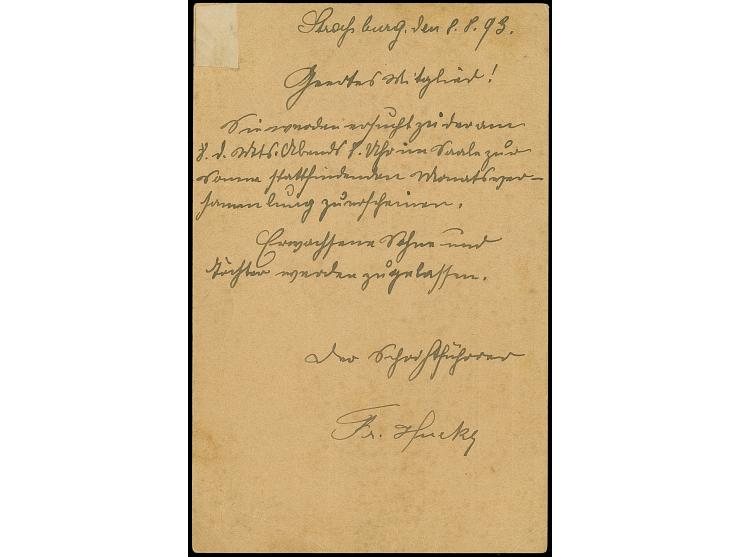 Strassburg, den 8. 8. 93.
Geertes Mitglied!
Sie werden ersucht zu der am
8. d. Mts. Abends 8. Uhr im Saale zur
Sonne stattfindenden Monatsver-
sammlung zu erscheinen.
Erwachsene Söhne und
Töchter werden zugelassen.
Der Schriftführer
Fr.